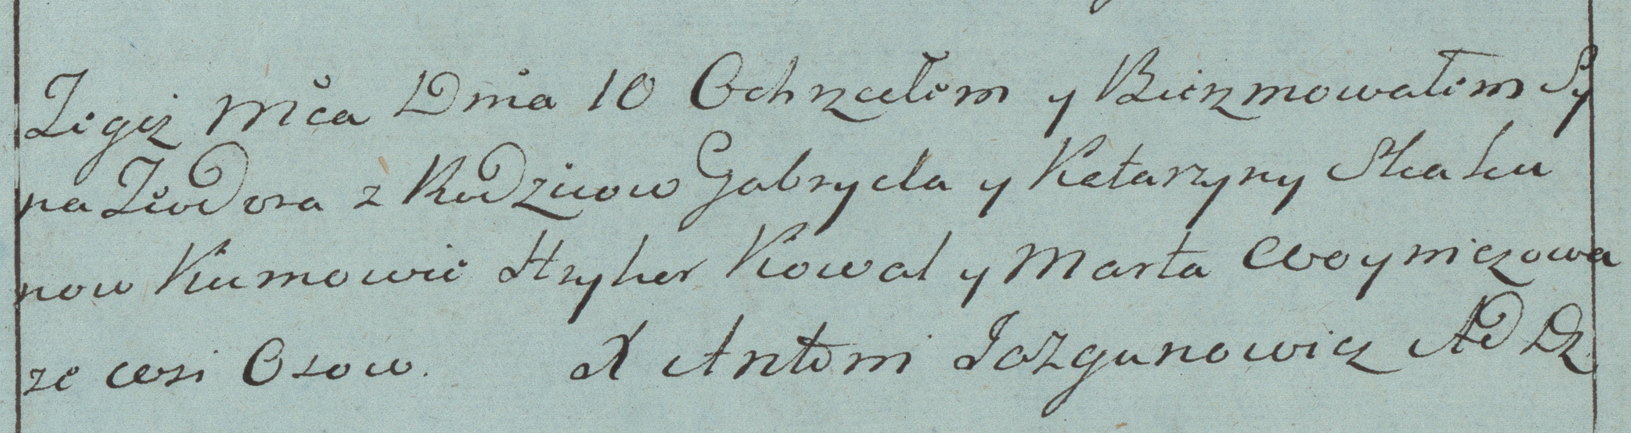 Tegiż Mca Dnia 10 Ochrzciłem y Bierzmowałem Sy
na Teodora z Rodzicow Gabryela y Katarzyny Skaku
now Kumowie Hryhor Kowal y Marta Woyniczowa
ze wsi Osow. X Antoni Jozgunowicz AD Dz.